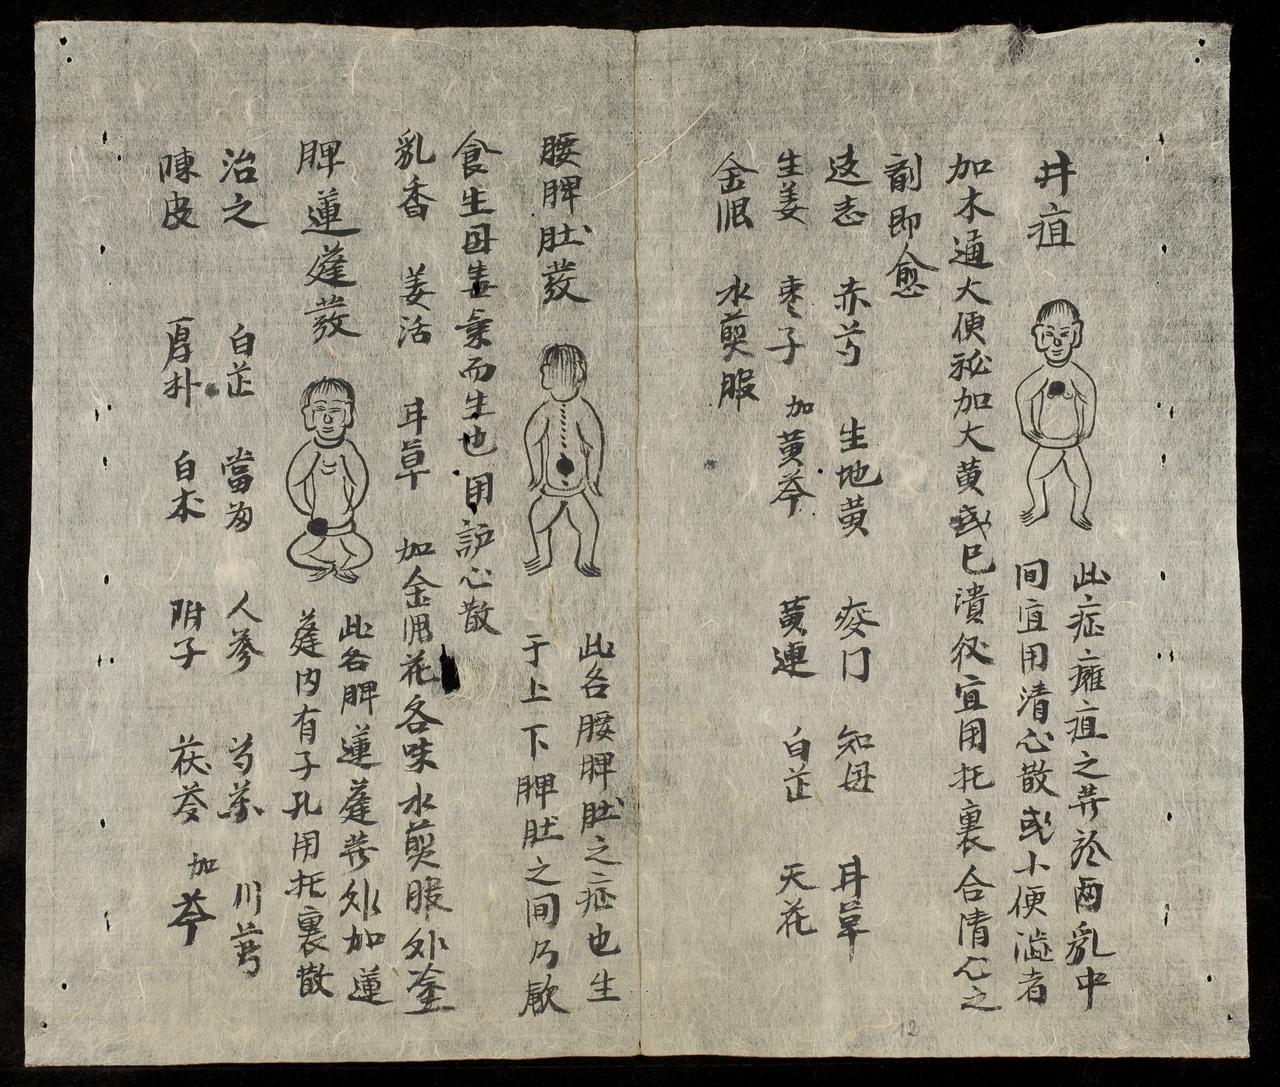 井疽
此症癰疽之發於两乳中
间宜用清心散或小便澁者
加木通大便秘加大黄或已潰後宜用托裏合清心之
劑即愈
远志 赤芍 生地黄 麦门 知母 甘草
生姜 枣子 加黄芩 黄連 白芷 天花
金艮 水煎服
腰脾肚發
此名腰脾肚之症也生
于上下脾肚之间乃
食生因而生也用護心散
乳香 姜活 甘草 加金艮花各味水煎服外塗
脾蓮蓬發
此名脾蓮蓬發外如蓮
蓬内有子孔用托裏散
治之 白芷 當 人參 芍薬 川芎
陳皮 厚朴 白朮 附子 茯苓 加芩
12